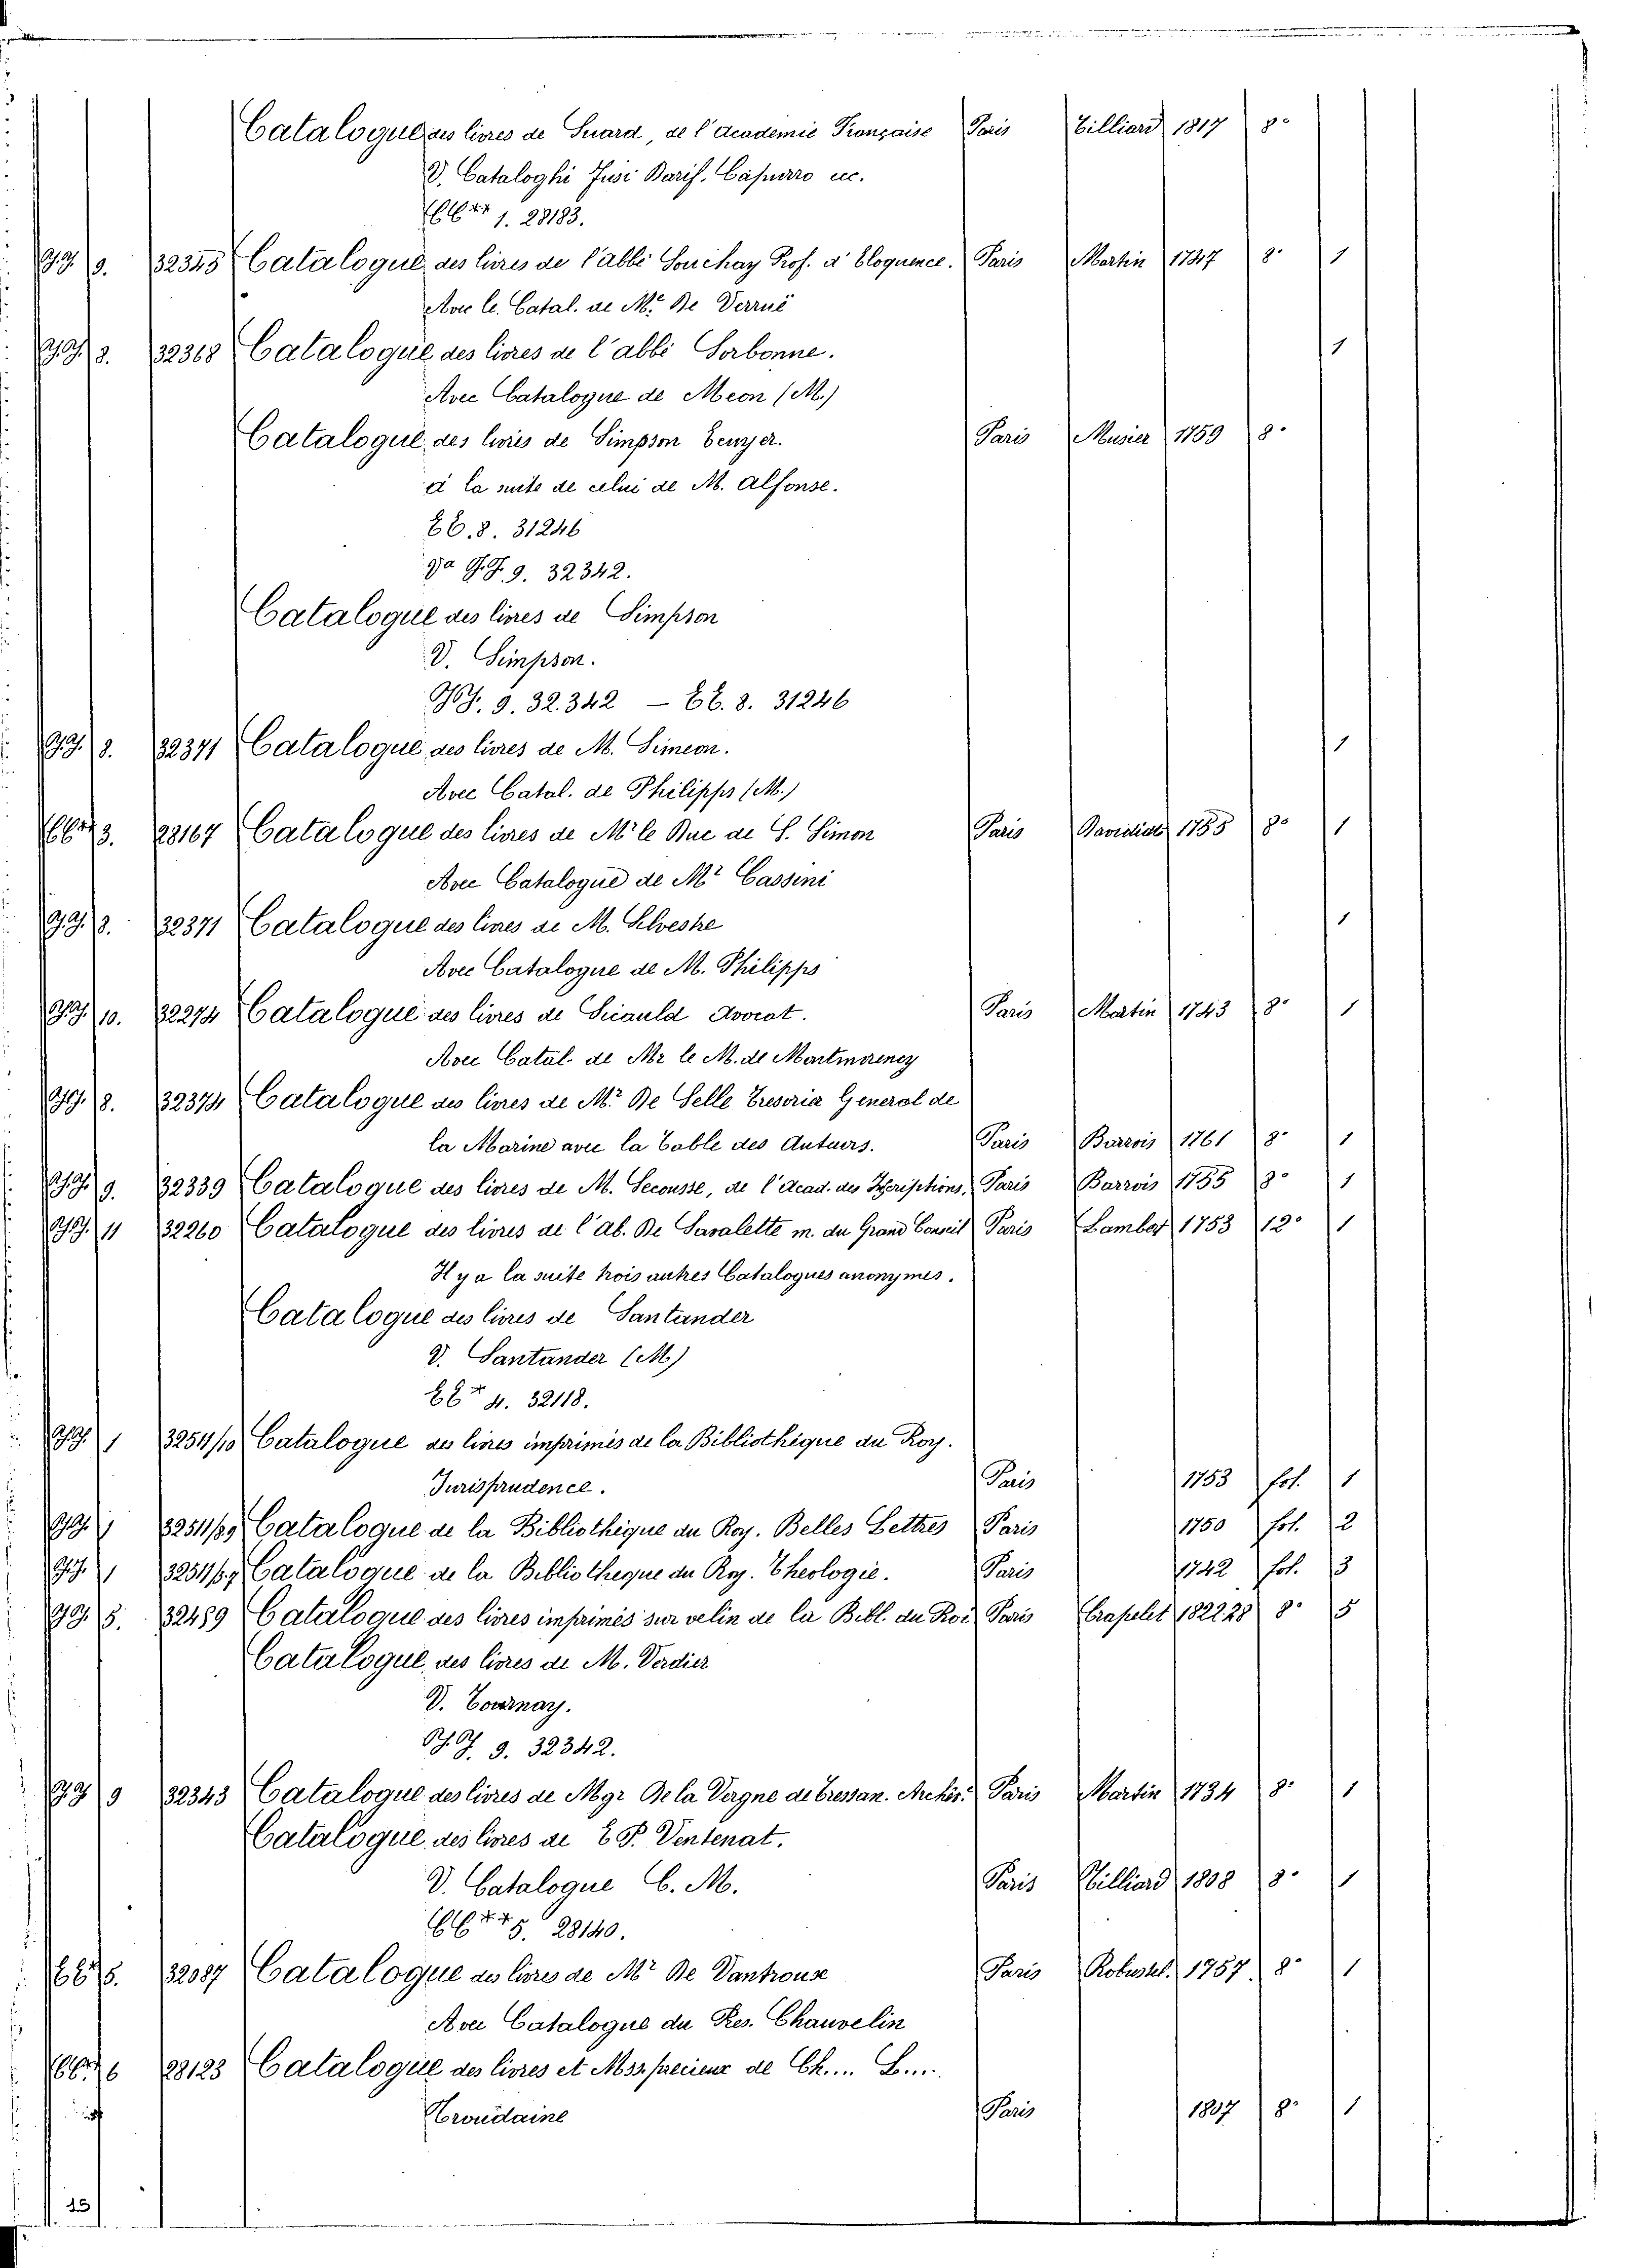 Catalogue des livres de Suard, de l'Academie Française Paris Tilliard 1817 8°
V. Cataloghi Fusi Barif. Capurro ec.
1. 28183.
GG 9. 32345 Catalogue des livres de l'abbé Souchay Prof. d'Eloquence. Paris Martin 1747 8° 1
Avec le Catal. de Mr. De Verrue
GG 8. 32368 Catalogue des livres de l'abbé Sorbonne. 1
Avec Catalogue de Meon (M.)
Catalogue des livres de Simpson Paris Musier 1759 8°
à la suite de celui de M. Alfonse.
EE. 8. 31246
GG. 9. 32342.
Catalogue des livres de Simpson
V. Simpson.
GG. 9. 32.342 — EE. 8. 31246
GG. 8. 32371 Catalogue des livres de M. Simeon. 1
Avec Catal. de Philipps (M.)
3. 28167 Catalogue des livres de Mr le Duc de S. Simon Paris 1755 8° 1
Avec Catalogue de Mr Cassini
GG. 8. 32371 Catalogue des livres de M. Selvestre 1
Avec Catalogue de M. Philipps
GG. 10. 32274 Catalogue des livres de Sicauld Avocat. Paris Martin 1743 8° 1
Avec Catal. de Mr le M. de
GG. 8. 32374 Catalogue des livres de Mr De Selle Tresorier General de
la Marine avec la Table des Auteurs. Paris Barrois 1761 8° 1
GG. 9. 32339 Catalogue des livres de M. Secousse, de l'Acad. des Inscriptions. Paris Barrois 1755 8° 1
GG. 11 32260 Catalogue des livres de l'Ab. De Savalette m. du Grand Conseil Paris Lambert 1753 12° 1
Il y a la suite trois autres Catalogues anonymes.
Catalogue des livres de Santander
V. Santander (M)
EE+ 4. 32118.
GG. 1 3251/10 Catalogue des livres imprimés de la Bibliothèque du Roy.
Jurisprudence. Paris 1753 fol. 1
GG. 1 Catalogue de la Bibliothèque du Roy. Belles Lettres Paris 1750 fol. 2
GG. 1 Catalogue de la Bibliotheque du Roy. Theologie. Paris 1742 fol. 3
GG. 5. 32489 Catalogue des livres imprimés sur velin de la Bibl. du Roi Paris Crapelet 182228 8° 5
Catalogue des livres de M. Verdier
V. Tournay.
GG. 9. 32342.
GG 9 32343 Catalogue des livres de Mgr De la Vergne de Tressan. Paris Martin 1734 8° 1
Catalogue des livres de E P. Ventenat.
V. Catalogue C. M. Paris Tilliard 1808 8° 1
EE++ 5. 28140.
5. 32087 Catalogue des livres de Mr De Vantrouse Paris Robustel. 1757. 8° 1
Avec Catalogue du Pres. Chauvelin
6 28123 Catalogue des livres et Mss precieux de Ch.... L....
Troudaine Paris 1807 8° 1